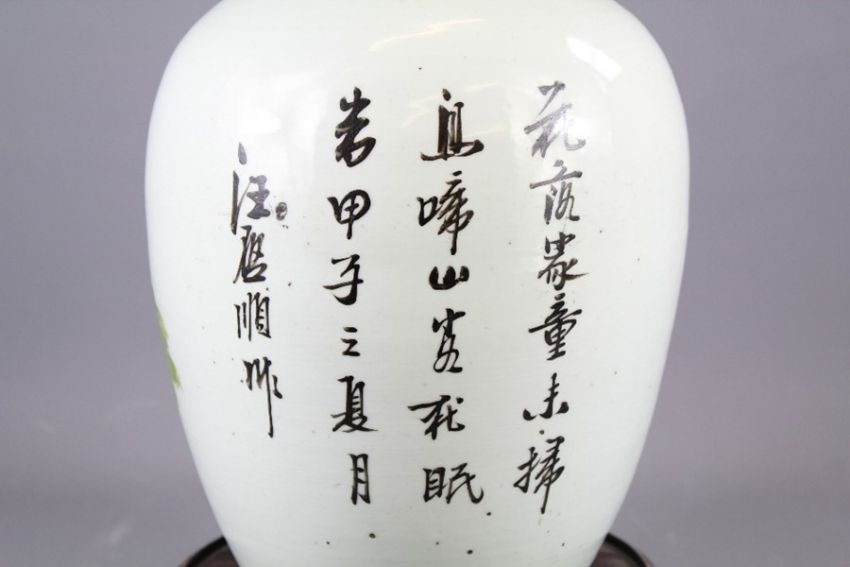 花落家童未掃
鳥啼山客犹眠
甲子之夏月
汪啓順作